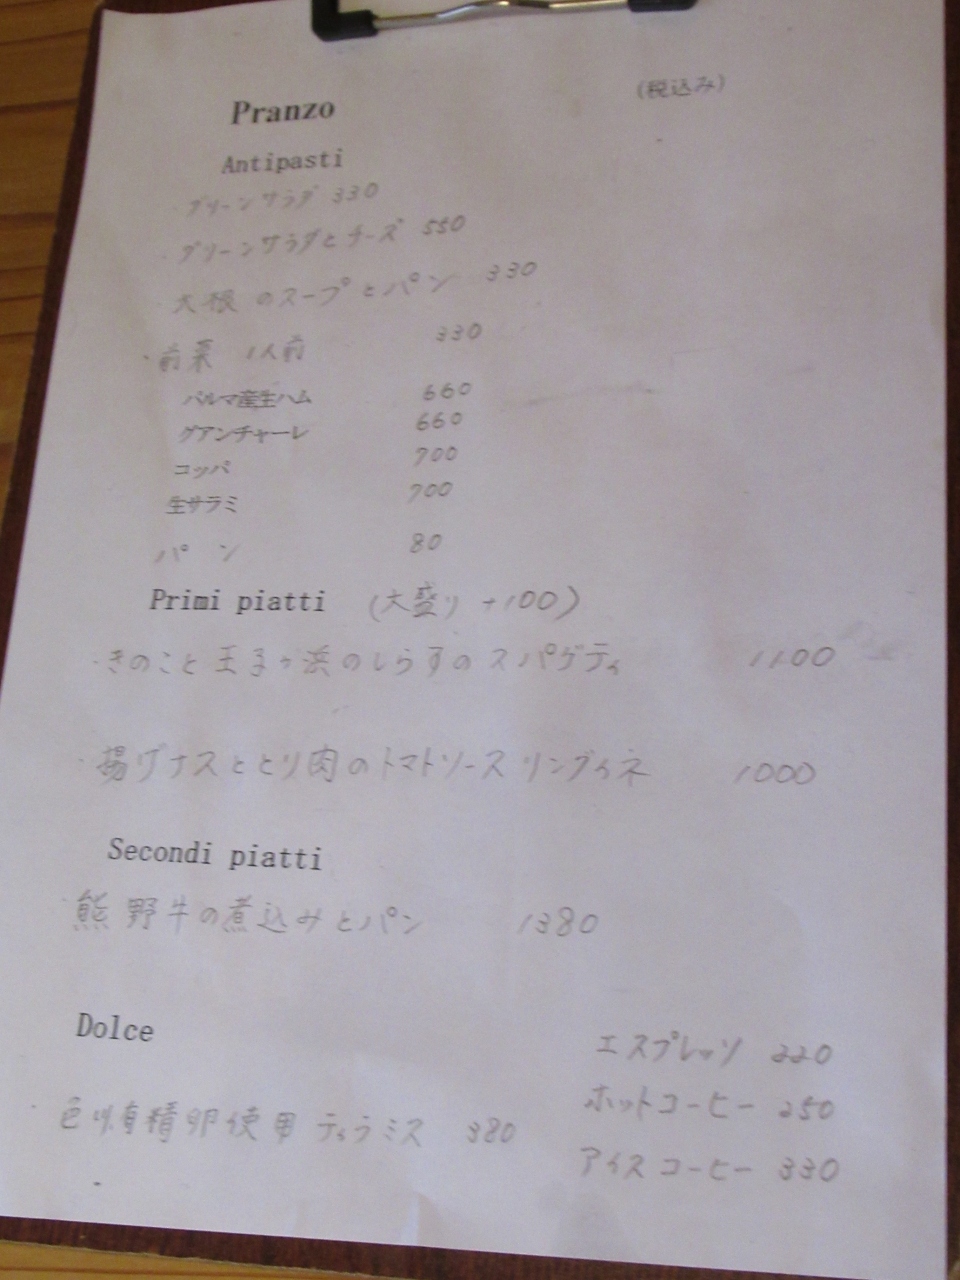 Pranzo (税込み)
Antipasti
グリーンサラダ 330
・グリーンサラダとチーズ 550
大根のスープとパン 330
・前菜 1人前 330
パルマ産生ハム 660
グアンチャーレ 660
コッパ 700
生サラミ 700
パン 80
Primi piatti (大盛り +100)
・きのこと王子ヶ浜のしらすのスパゲティ 1100
・揚げナスととり肉のトマトソース リングイネ 1000
Secondi piatti
・熊野牛の煮込みとパン 1380
Dolce
エスプレッソ 220
ホットコーヒー 250
・色川有精卵使用 ティラミス 380
アイスコーヒー 330